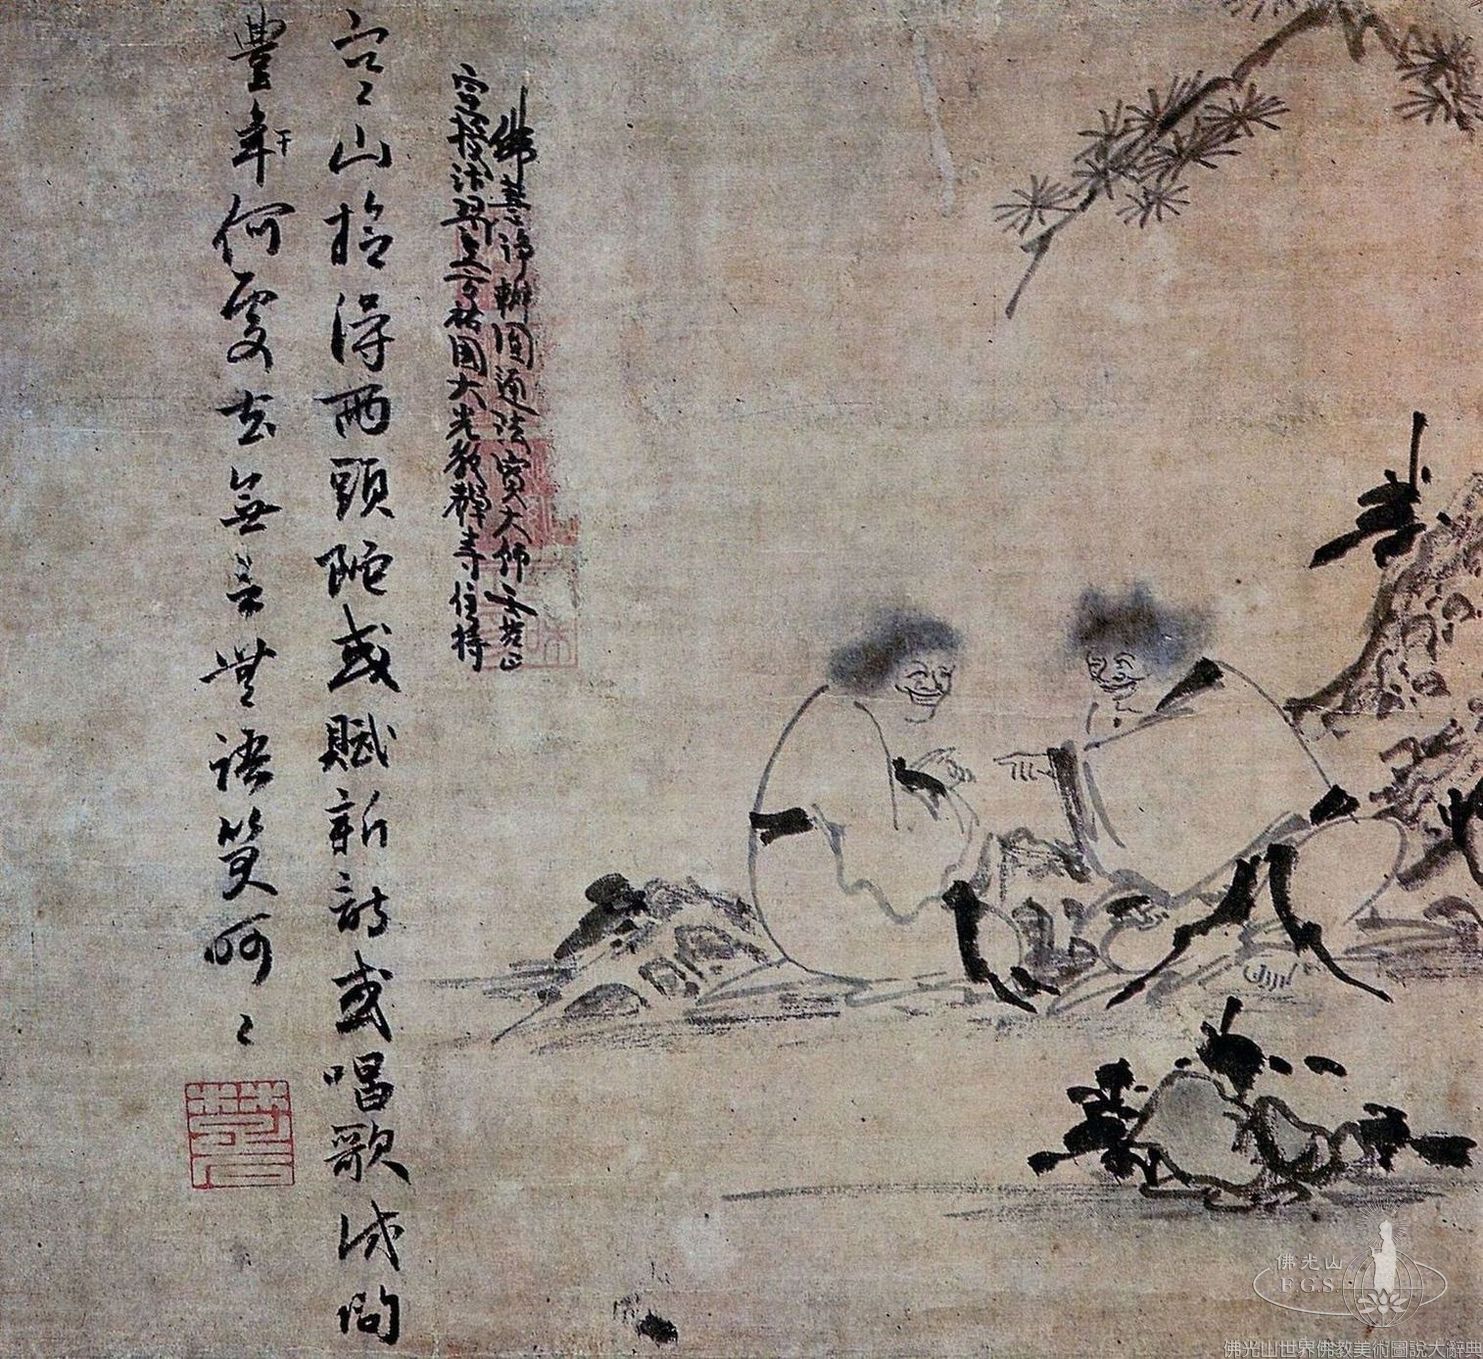 宣授汴梁上方祐國大光教禪寺住持
佛慧淨辯圓通法寶大師壬梵因
寒山拾得兩頭陀或賦新詩或唱歌試問
豐年干何處去無言無語笑呵〻
楚石
佛光山
F.G.S.
佛光山世界佛教美術圖說大辭典